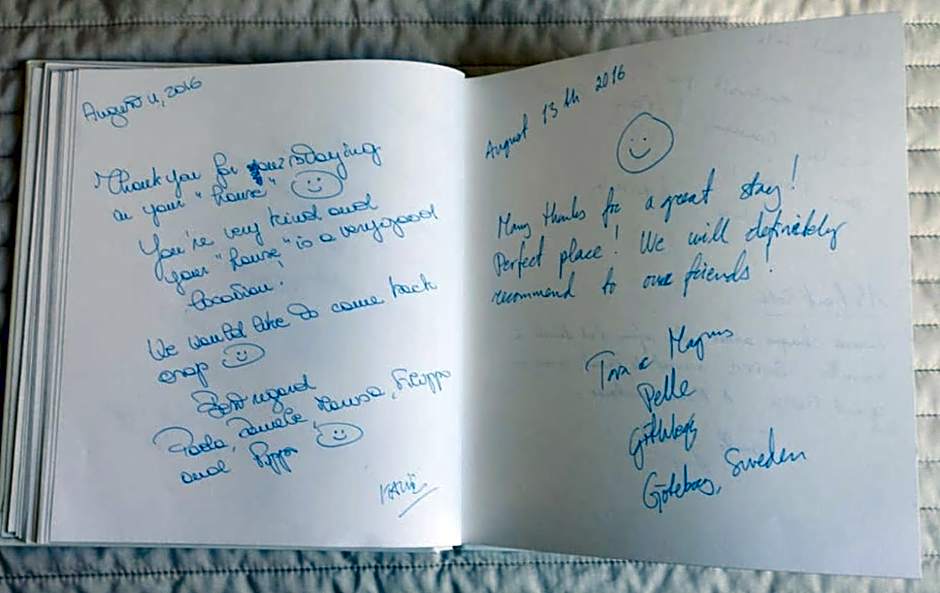 August 11, 2016
Thank you for your staying
in your "house"
You're very kind and
your "house" is a very good
location!
We would like to come back
Best regard
Paola, Daniele, Marisa, Filippo
and
August 13 th 2016
Many thanks for a great stay!
Perfect place! We will definitely
recommend to our friends!
Magnus
Pelle
Göteborg, Sweden